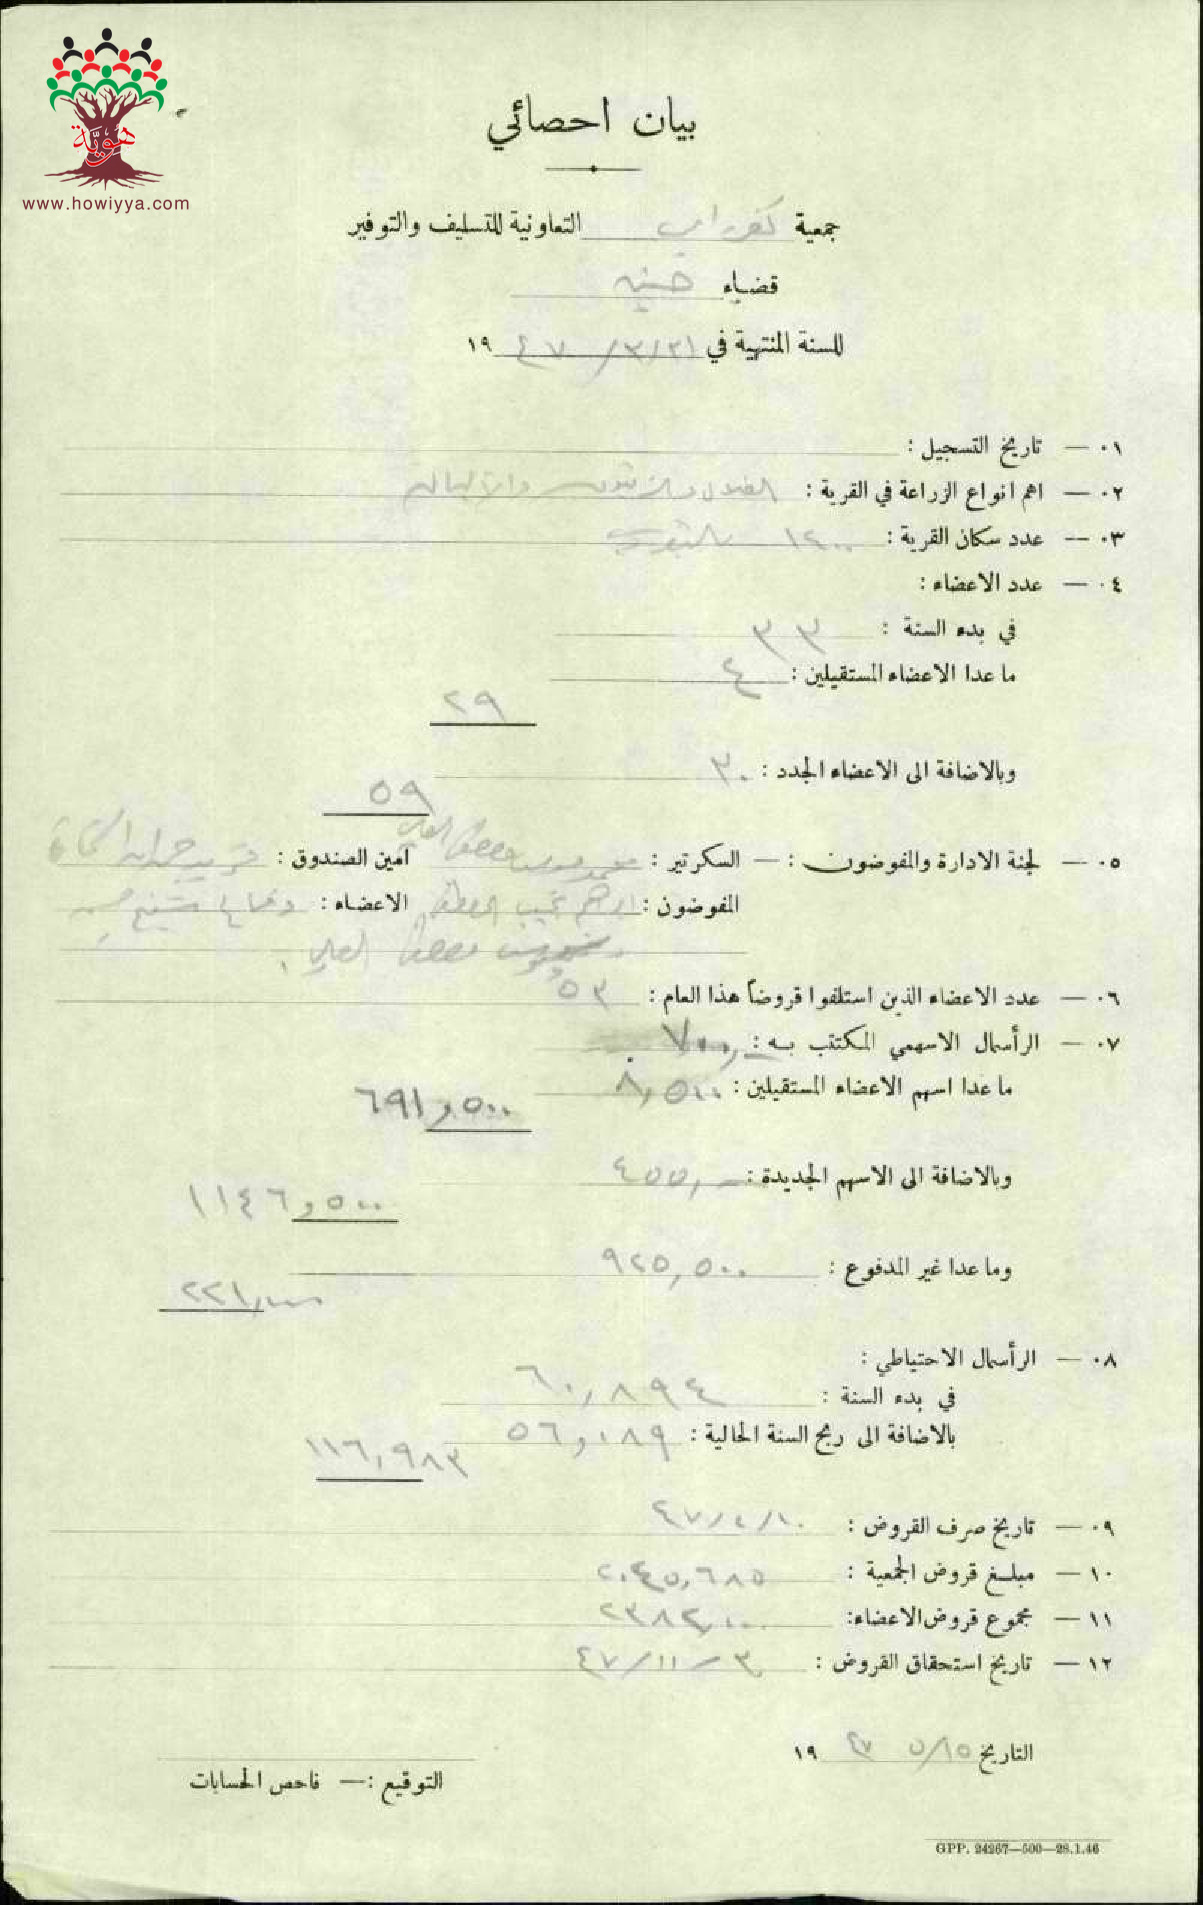 هوية
www.howiyya.com
بيان احصائي
جمعية كفر راعي التعاونية للتسليف والتوفير
قضاء جنين
للسنة المنتهية في ٣١/٣/ ٤٧ ١٩
٠١ — تاريخ التسجيل :
٠٢ — اهم انواع الزراعة في القرية :
٠٣ — عدد سكان القرية : ١٢٠٠
٠٤ — عدد الاعضاء :
في بدء السنة : ٣٣
ما عدا الاعضاء المستقيلين : ٤
٢٩
وبالاضافة الى الاعضاء الجدد : ٣٠
٥٩
٠٥ — لجنة الادارة والمفوضون : — السكرتير : العلي امين الصندوق :
المفوضون : نجيب الاعضاء :
العلي
٠٦ — عدد الاعضاء الذين استلفوا قروضاً هذا العام : ٥٣
٠٧ — الرأسمال الاسهمي المكتتب به : ٧٠٠,—
ما عدا اسهم الاعضاء المستقيلين : ٨,٥٠٠
٦٩١,٥٠٠
وبالاضافة الى الاسهم الجديدة : ٤٥٥,—
١١٤٦,٥٠٠
وما عدا غير المدفوع : ٩٢٥,٥٠٠
٢٢١,—
٠٨ — الرأسمال الاحتياطي :
في بدء السنة : ٦٠,٨٩٤
بالاضافة الى ربح السنة الحالية : ٥٦,٠٨٩
١١٦,٩٨٣
٠٩ — تاريخ صرف القروض :
١٠ — مبلغ قروض الجمعية : ٢٠٤٥,٦٨٥
١١ — مجموع قروض الاعضاء: ٢٣٨٢,١٠٠
١٢ — تاريخ استحقاق القروض : ٣٠/١١/٤٧
التاريخ ١٥/٥ ٤٧ ١٩
التوقيع :— فاحص الحسابات
GPP. 24267—500—28.1.46